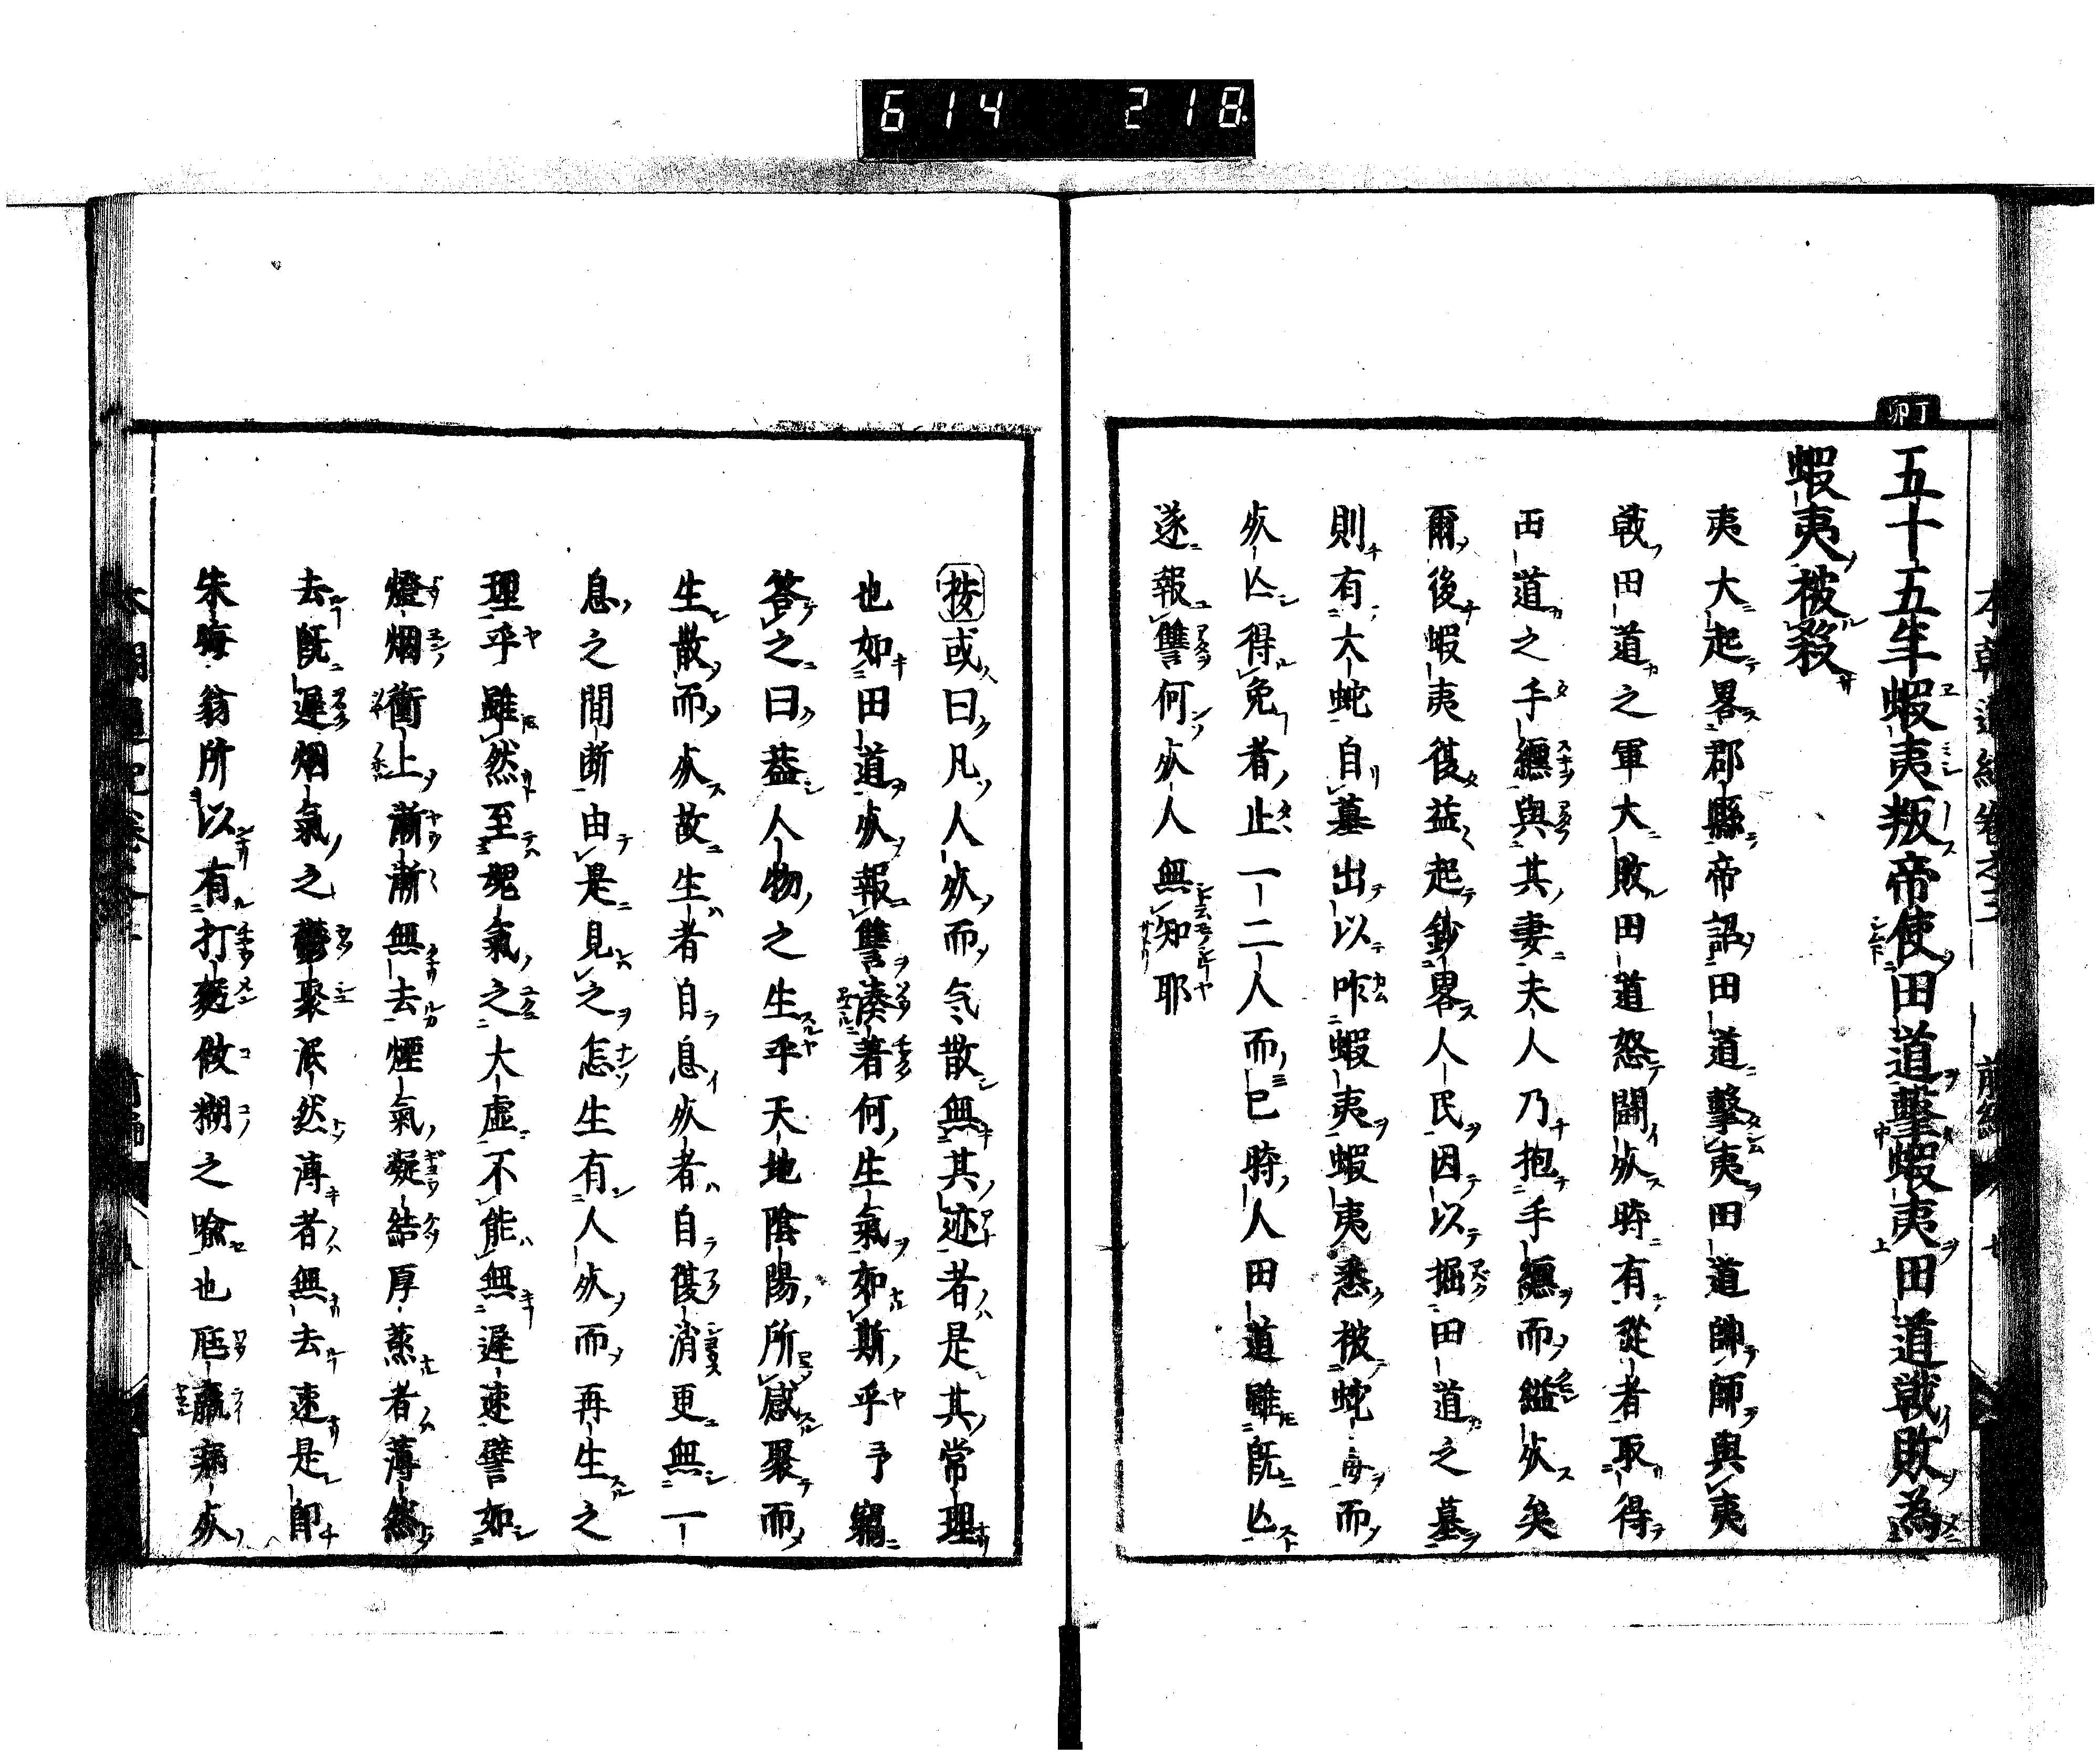 614 218
丁卯
五十五年蝦夷叛帝使田道擊蝦夷田道戰敗為
蝦夷被殺
夷大起畧郡縣帝詔田道擊夷田道帥師與夷
戰田道之軍大敗田道怒鬪死時有從者取得
田道之手纏與其妻夫人乃抱手纏而縊死矣
爾後蝦夷復益起鈔畧人民因以掘田道之墓
則有大蛇自墓出以咋蝦夷蝦夷悉被蛇毒而
死亡得免者止一二人而已時人田道雖既亡
遂報讐何死人無知耶
按或曰凡人死而气散無其迹者是其常理
也如田道死報讐湊著何生氣如斯乎予竊
答之曰蓋人物之生乎天地陰陽所感聚而
生散而死故生者自息死者自復消更無一
息之間断由是見之怎生有人死而再生之
理乎雖然至魂氣之大虛不能無遲速譬如
燈烟衝上漸漸無去煙氣凝結厚蒸者薄然
去既遲烟氣之鬱聚泯然薄者無去速是即
朱晦翁所以有打麪做糊之喩也尫羸病死